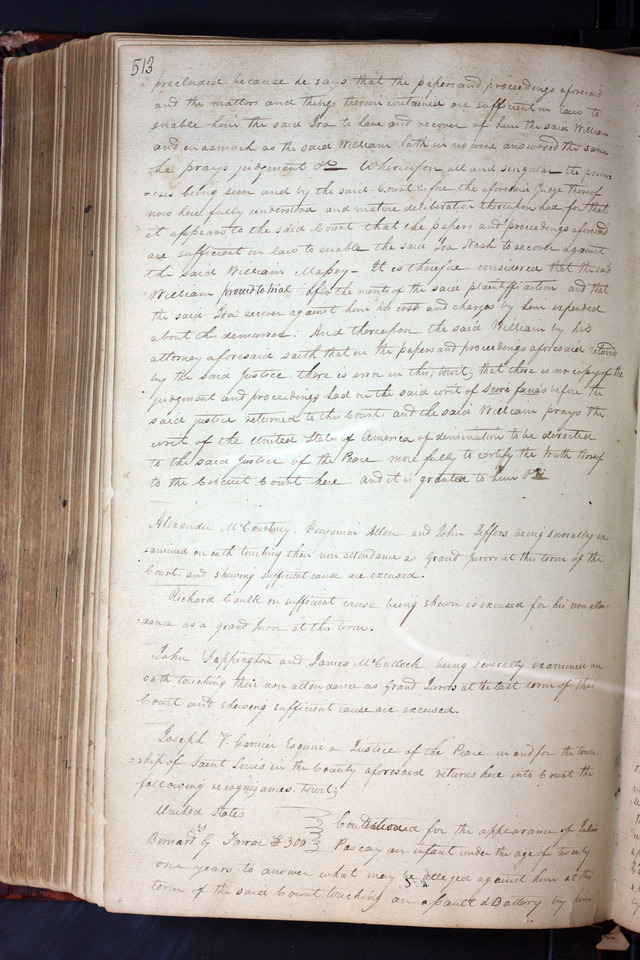 513
precluded because he says that the papers and proceedings aforesaid
and the matters and things therein contained are sufficient in law to
enable him the said Ira to have and recover of him the said William
and in asmuch as the said William hath in no wise answered the same
he prays judgment &c Whereupon all and singular the prem-
-ises being seen and by the said Court before the aforesaid Judge thereof
now here fully understood and mature deliberation thereupon had for that
it appears to the said Court that the papers and proceedings aforesaid
are sufficient in law to enable the said Ira Nash to recover against
the said William Massey - It is therefore considered that the said
William proceed to trial the merits of the said plaintiff action and that
the said Ira recover against him his costs and charges by him expended
about this demurrer: And thereupon the said William by his
attorney aforesaid saith that in the papers and proceedings aforesaid returned
by the said Justice there is error in this, towit; that there is no copy of the
judgment and proceedings had on the said writ of Scire facias before the
said justice returned to this Court and the said William prays the
writ of the United States of America of diminution to be directed
to the said Justice of the Peace more fully to certify the truth thereof
to the Circuit Court here and it is granted to him &c
Alexander McCourtney, Benjamin Allen and John Jeffors being severally ex-
amined on oath touching their non attendance as Grand Jurors at this term of the
Court and shewing sufficient cause are excused.
Richard Caulk on sufficient cause being shewn is excused for his non atten-
-dance as a grand Juror at this term.
John Sappington and James McCulloch being severally examined on
oath touching their non attendance as Grand Jurors at the last term of this
Court and shewing sufficient cause are excused.
Joseph V. Garnier Esquire a Justice of the Peace in and for the town-
-ship of Saint Louis in the County aforesaid returns here into Court the
following recognizances. towit;
United States
vs
Bernard G Farrar $300
Conditioned for the appearance of
Pascay an infant under the age of twenty
one years to answer what may be alleged against him at the
term of the said Court touching an assault & Battery by him